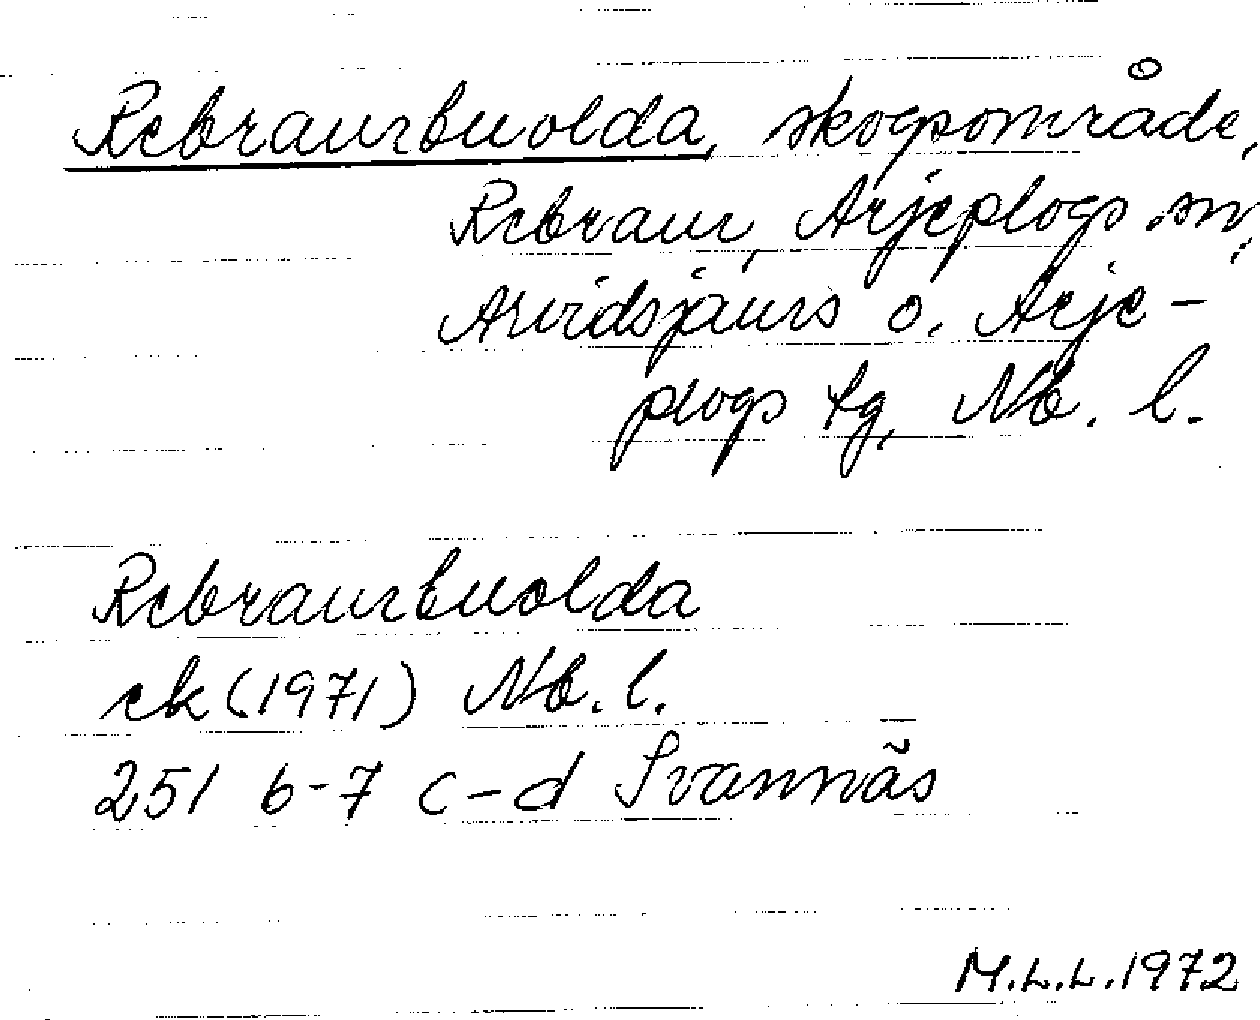 Rebraurbuolda, skogsområde,
Rebraur, Arjeplogs sn,
Arvidsjaurs o. Arje-
plogs tg, Nb. l.
Rebraurbuolda
ek (1971) Nb. l.
251 6-7 c-d Svannäs
M.L.L. 1972